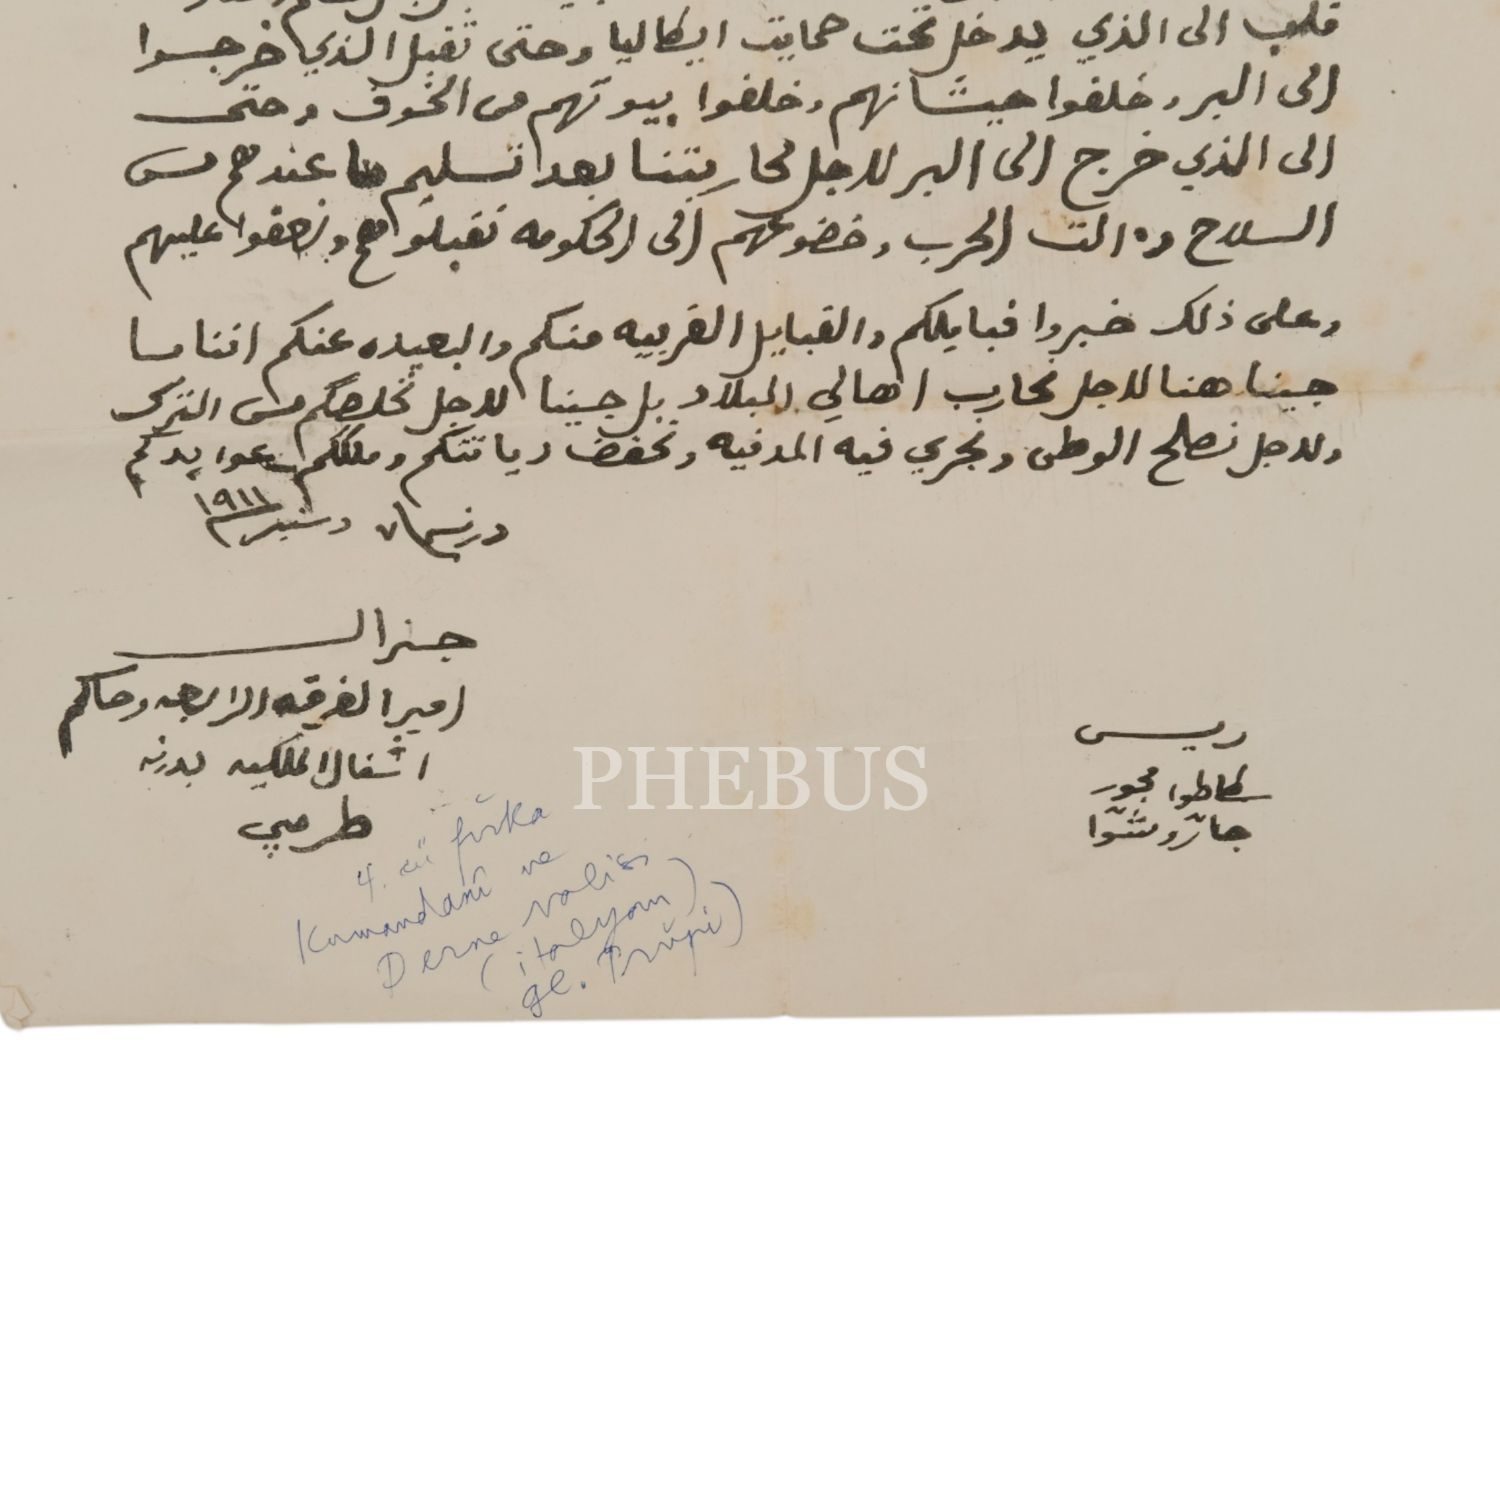 قلب الى الذي يدخل تحت حمايت ايطاليا وحتى نقبل الذي خرجوا
الى البر وخلفوا حيشانهم وخلفوا بيوتهم من الخوف وحتى
الى الذي خرج الى البر لاجل محاربتنا بعد تسليم ما عندهم من
السلاح وءالت الحرب وخضوعهم الى الحكومه نقبلوهم ونعفوا عليهم
وعلى ذلك خبروا قبايلكم والقبايل القريبه منكم والبعيده عنكم اننا ما
جينا هنا لاجل نحارب اهالي البلاد بل جينا لاجل نخلصكم من الترك
ولاجل نصلح الوطن ونجري فيه المدنيه ونحفض ديانتكم وملككم وعوايدكم
درنه دسنبر ١٩١١
جنرال
امير الفرقه الرابعه وحاكم
اشغال الملكيه بدرنه
طرمبي
ريس
سطاطوا مجور
PHEBUS
4. cü fırka
Kumandanı ve
Derne valisi
(italyan)
ge. Trupi)